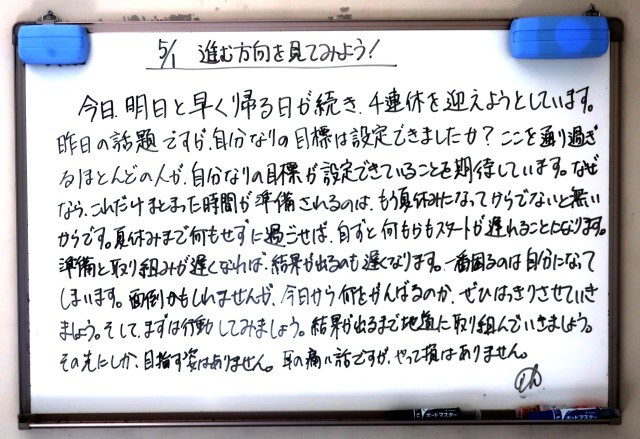 5/1 進む方向を見てみよう！
今日、明日と早く帰る日が続き、4連休を迎えようとしています。
昨日の話題ですが、自分なりの目標は設定できましたか？ここを通り過ぎ
るほとんどの人が、自分なりの目標が設定できていることを期待しています。なぜ
なら、これだけまとまった時間が準備されるのは、もう夏休みになってからでないと無い
からです。夏休みまで何もせずに過ごせば、自ずと何もかもスタートが遅れることになります。
準備と取り組みが遅くなれば、結果が出るのも遅くなります。一番困るのは自分になって
しまいます。面倒かもしれませんが、今日から何をがんばるのか、ぜひはっきりさせていき
ましょう。そして、まずは行動してみましょう。結果が出るまで地道に取り組んでいきましょう。
その先にしか、目指す姿はありません。耳の痛い話ですが、やって損はありません。
ボードマスター
ボードマスター